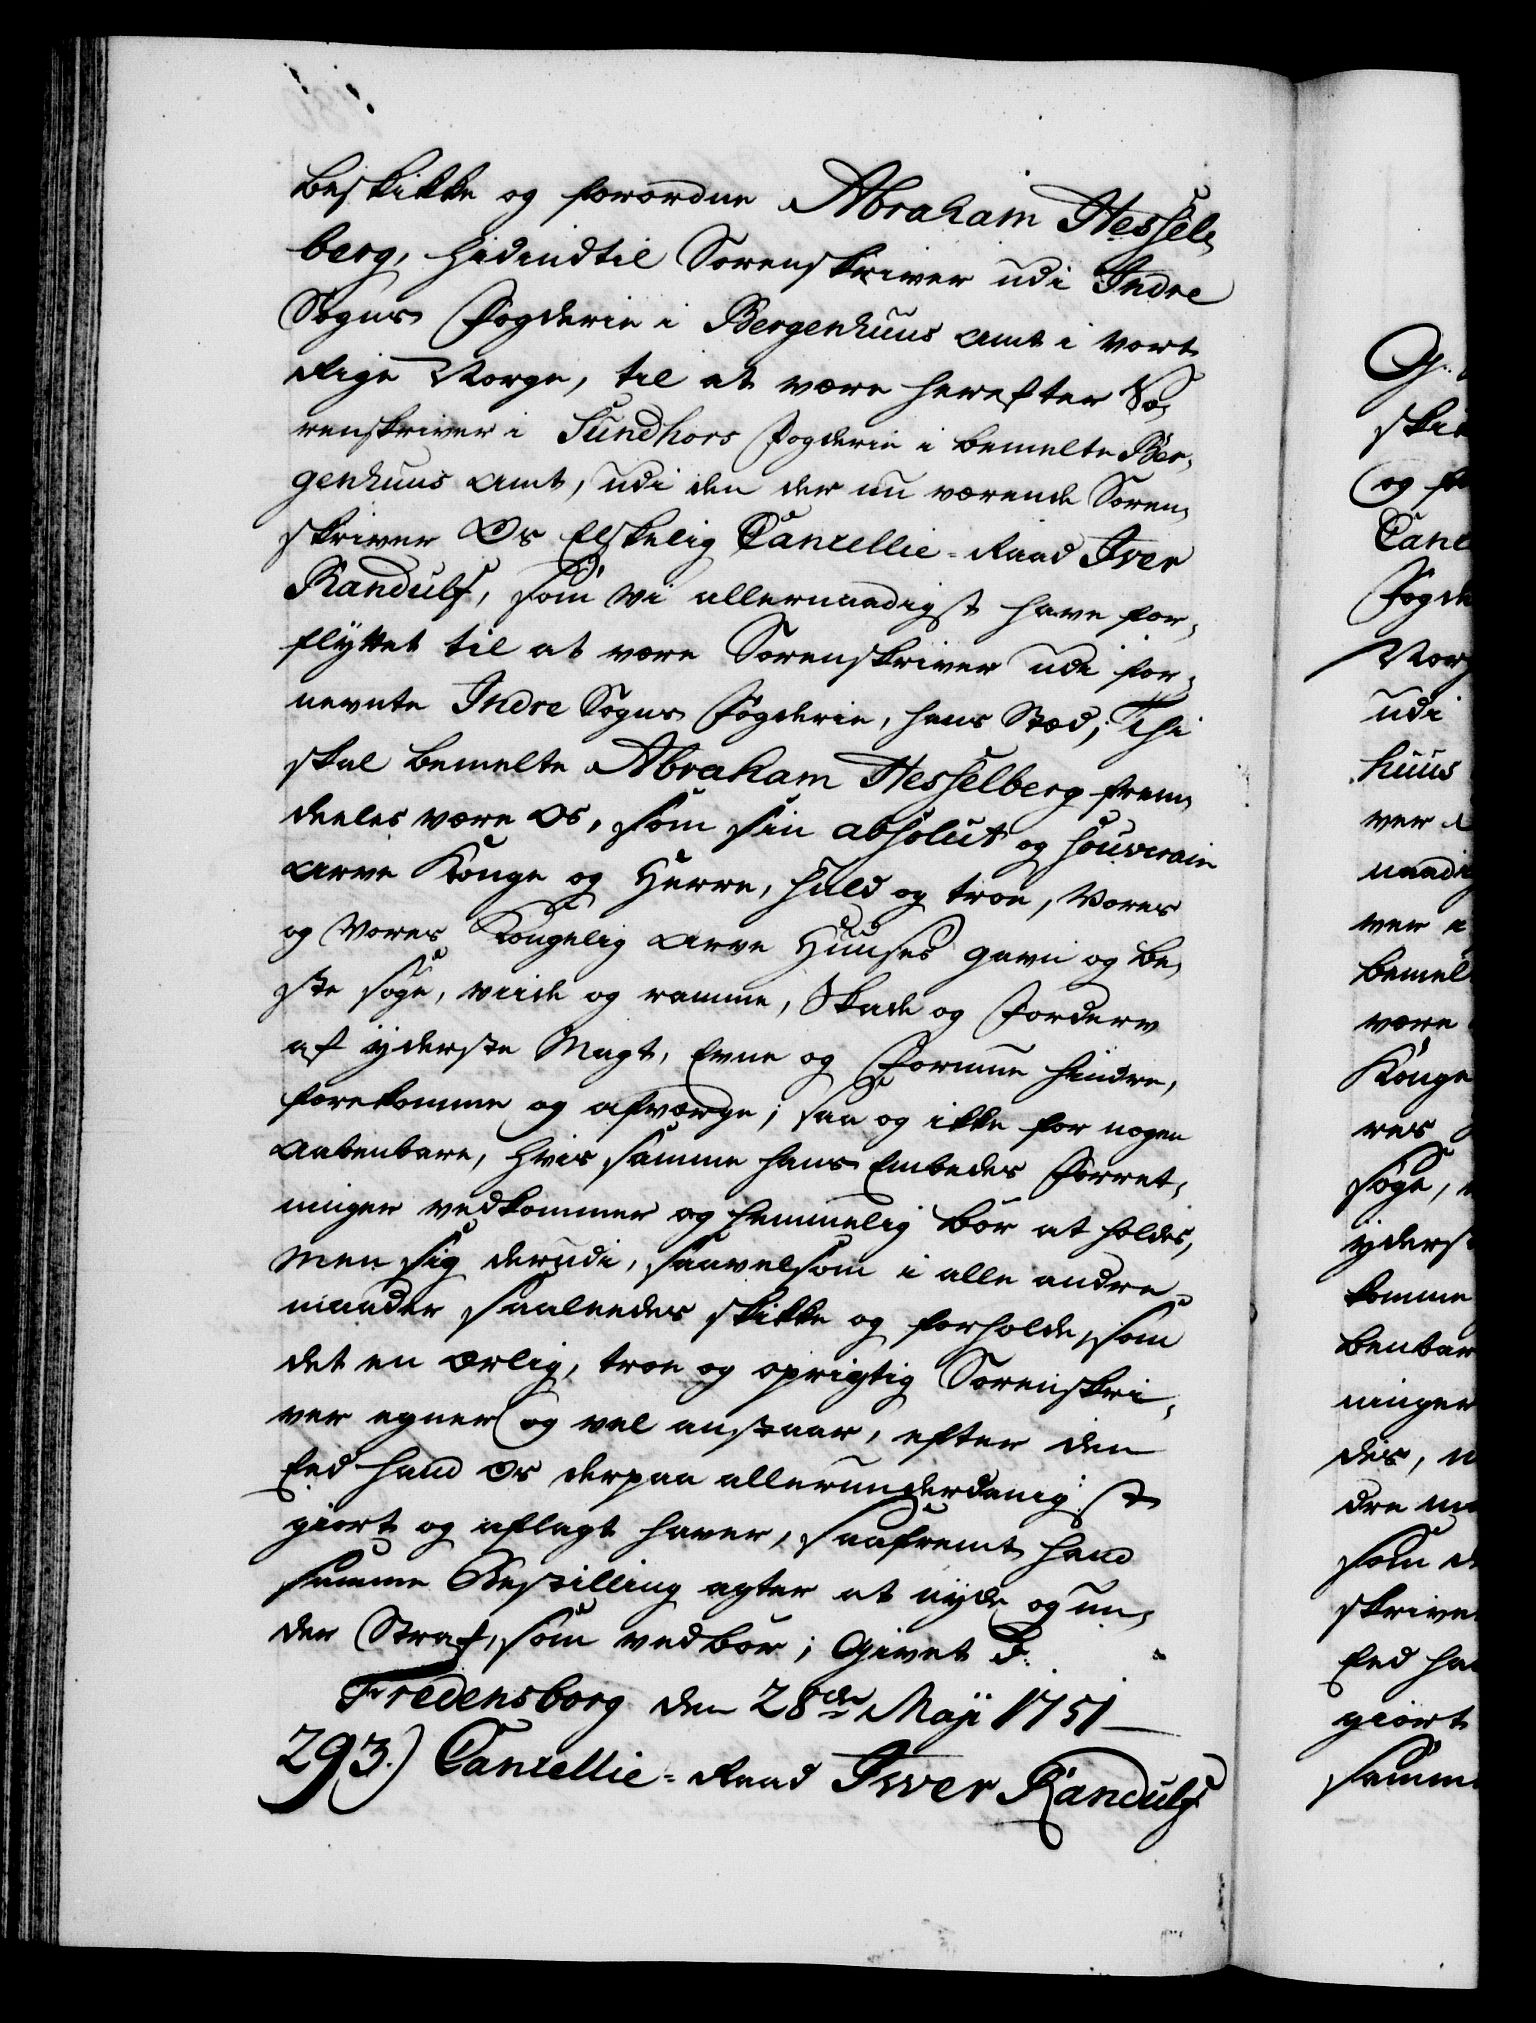 beskikke og forordne Abraham Hessel-
berg, hidindtil Sorenskriver udi Indre
Sogns Fogderie i Bergenhuus Amt i vort
Rige Norge, til at være herefter So-
renskriver i Sundhors Fogderie i bemelte Ber-
genhuus Amt, udi den der nu værende Soren-
skriver Os Elskelig Cancellie-Raad Iver
Randulf, som vi allernaadigst have for-
flyttet til at være Sorenskriver udi for-
nevnte Indre Sogns Fogderie, hans Stæd; Thi
skal bemelte Abraham Hesselberg frem-
deeles være Os, som sin absolut og souverain
Arve Konge og Herre, huld og troe, Vores
og Vores Kongelig Arve Huuses gavn og be-
ste søge, viide og ramme, Skade og Forderv
af yderste Magt, Evne og Formue hindre,
forekomme og afværge; saa og ikke for nogen
aabenbare, hvis samme hans Embedes Forret-
ninger vedkommer og hemmelig bør at holdes,
men sig derudi, saavelsom i alle andre
maader saaleedes skikke og forholde, som
det en ærlig, troe og oprigtig Sorenskri-
ver egner og vel anstaar, efter den
Eed hand Os derpaa allerunderdanigst
giort og aflagt haver, saafremt hand
samme Bestilling agter at nyde og un-
der Straf, som vedbør; Givet p.
Fredensborg den 28de Maji 1751
293.) Cancellie-Raad Iver Randulf